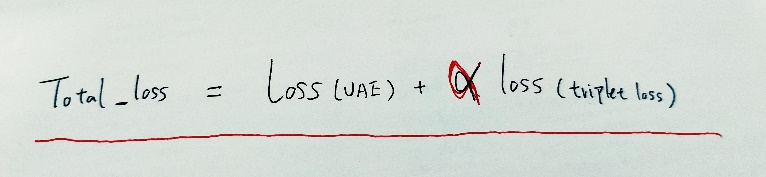 Total_loss = Loss (UAE) + α loss (triplet loss)